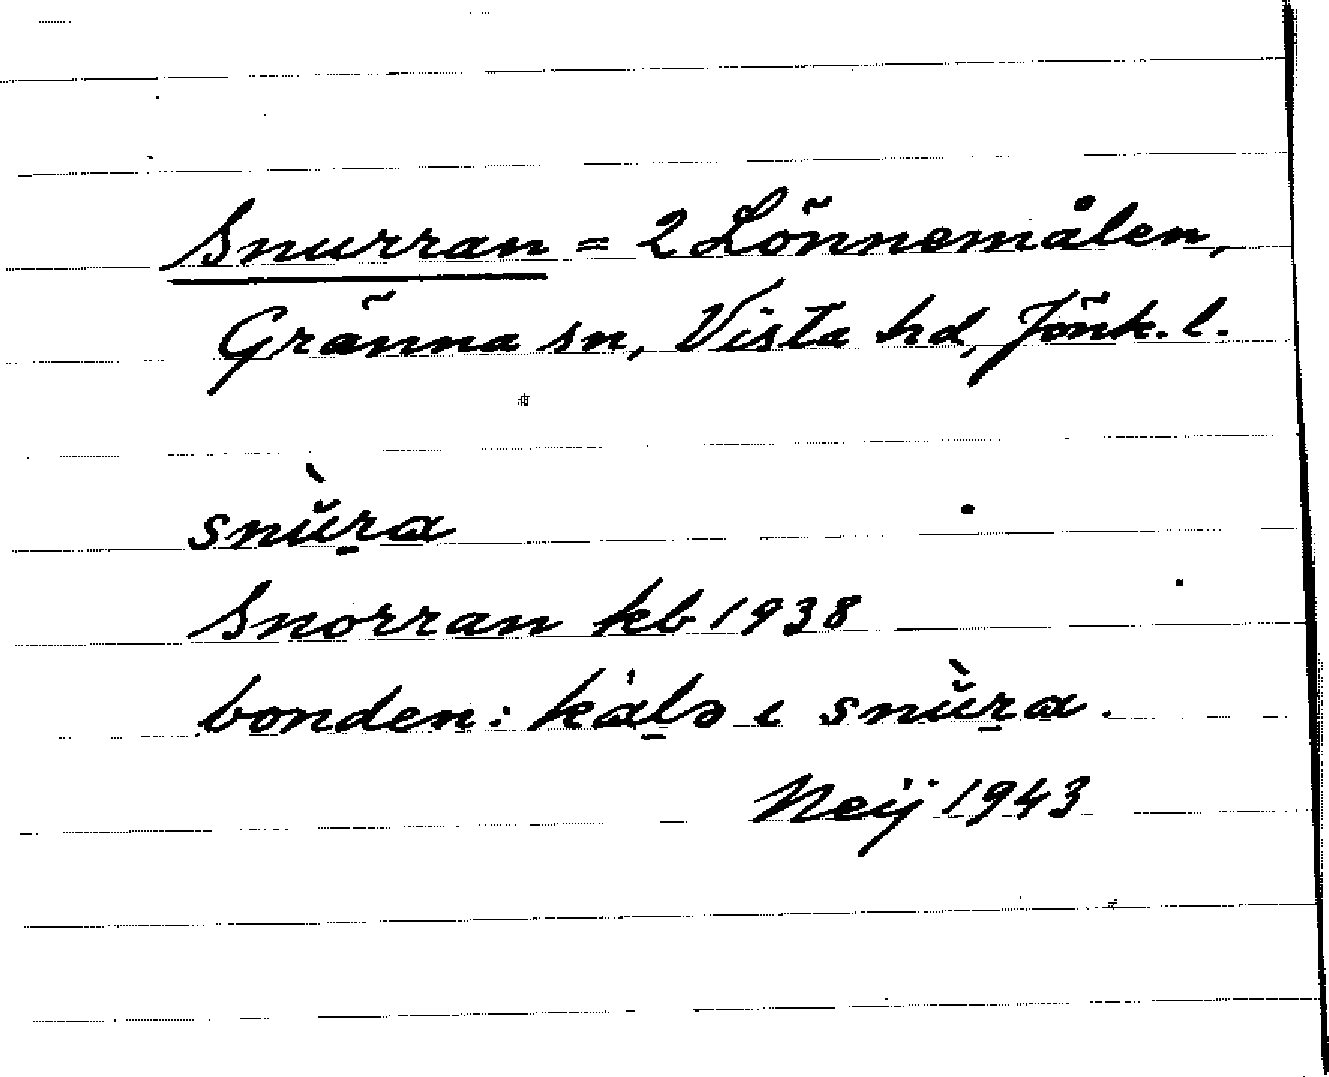 Snurran = 2 Lönnemålen,
Gränna sn, Vista hd, Jönk. l.
snù̆r̠a
Snorran kb 1938
bonden: kàl̠ɔ ɩ snù̆r̠a.
Neij 1943